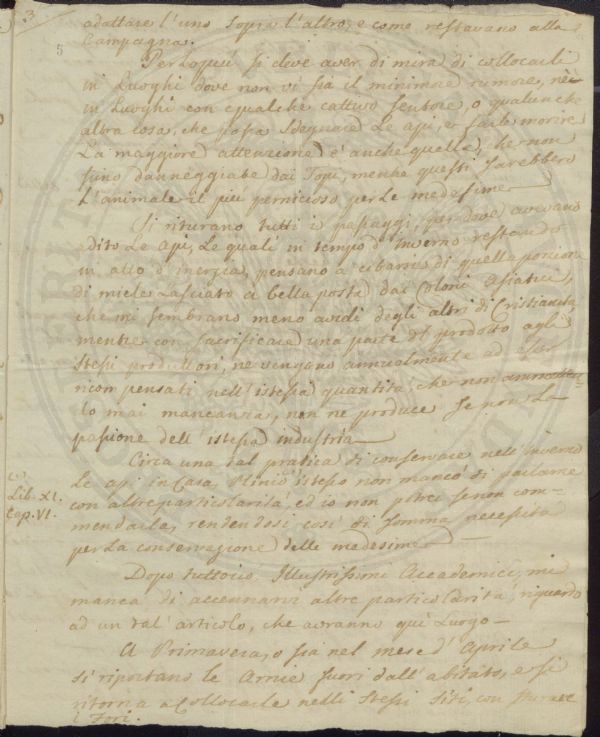 3
5
adattare l'uno sopra l'altro, e come restavano alla
Campagna.
Per lo più si deve aver di mira di collocarli
in Luoghi dove non vi sia il minimore rumore, nè
in Luoghi con qualche cattivo sentore, o qualunche
altra cosa, che possa sdegnare Le api, e farle morire
La maggiore attenzione è anche quella, che non
sino danneggiate dai Topi, mentre questi sarebbero
L'animale il più pernicioso per Le medesime
Si riturano tutti i passaggi, per dove avevano
adito Le api, Le quali in tempo d'Inverno restando
in atto d'inerzia, pensano a cibarsi di quella porzione
di miele Lasciato a bella posta dai Coloni Asiatici,
che mi sembrano meno avidi degli altri di Cristianità,
mentre con sacrificare una parte del prodotto agli
stessi produttori, ne vengono annualmente ad esser
ricompensati nell'istessa quantità, che non
lo mai mancanza, non ne produce se non La
passione dell'istessa industria
Circa una tal pratica di conservare nell'Inverno
Le api in Casa, Plinio istesso non mancò di parlarne
con altre particolarità, ed io non potrei se non com-
mendarla, rendendosi così di somma necessità
per La conservazione delle medesime
Lib. XI.
Cap. VI.
Dopo tuttociò Illustrissimi Accademici, mi
manca di accennarvi altre particolarità, riguardo
ad un tal'articolo, che avranno quì Luogo
A Primavera, o sia nel mese d'Aprile
si riportano le Arnie fuori dall'abitato, e si
ritorna a Collocarle nelli stessi siti, con
i Fori.